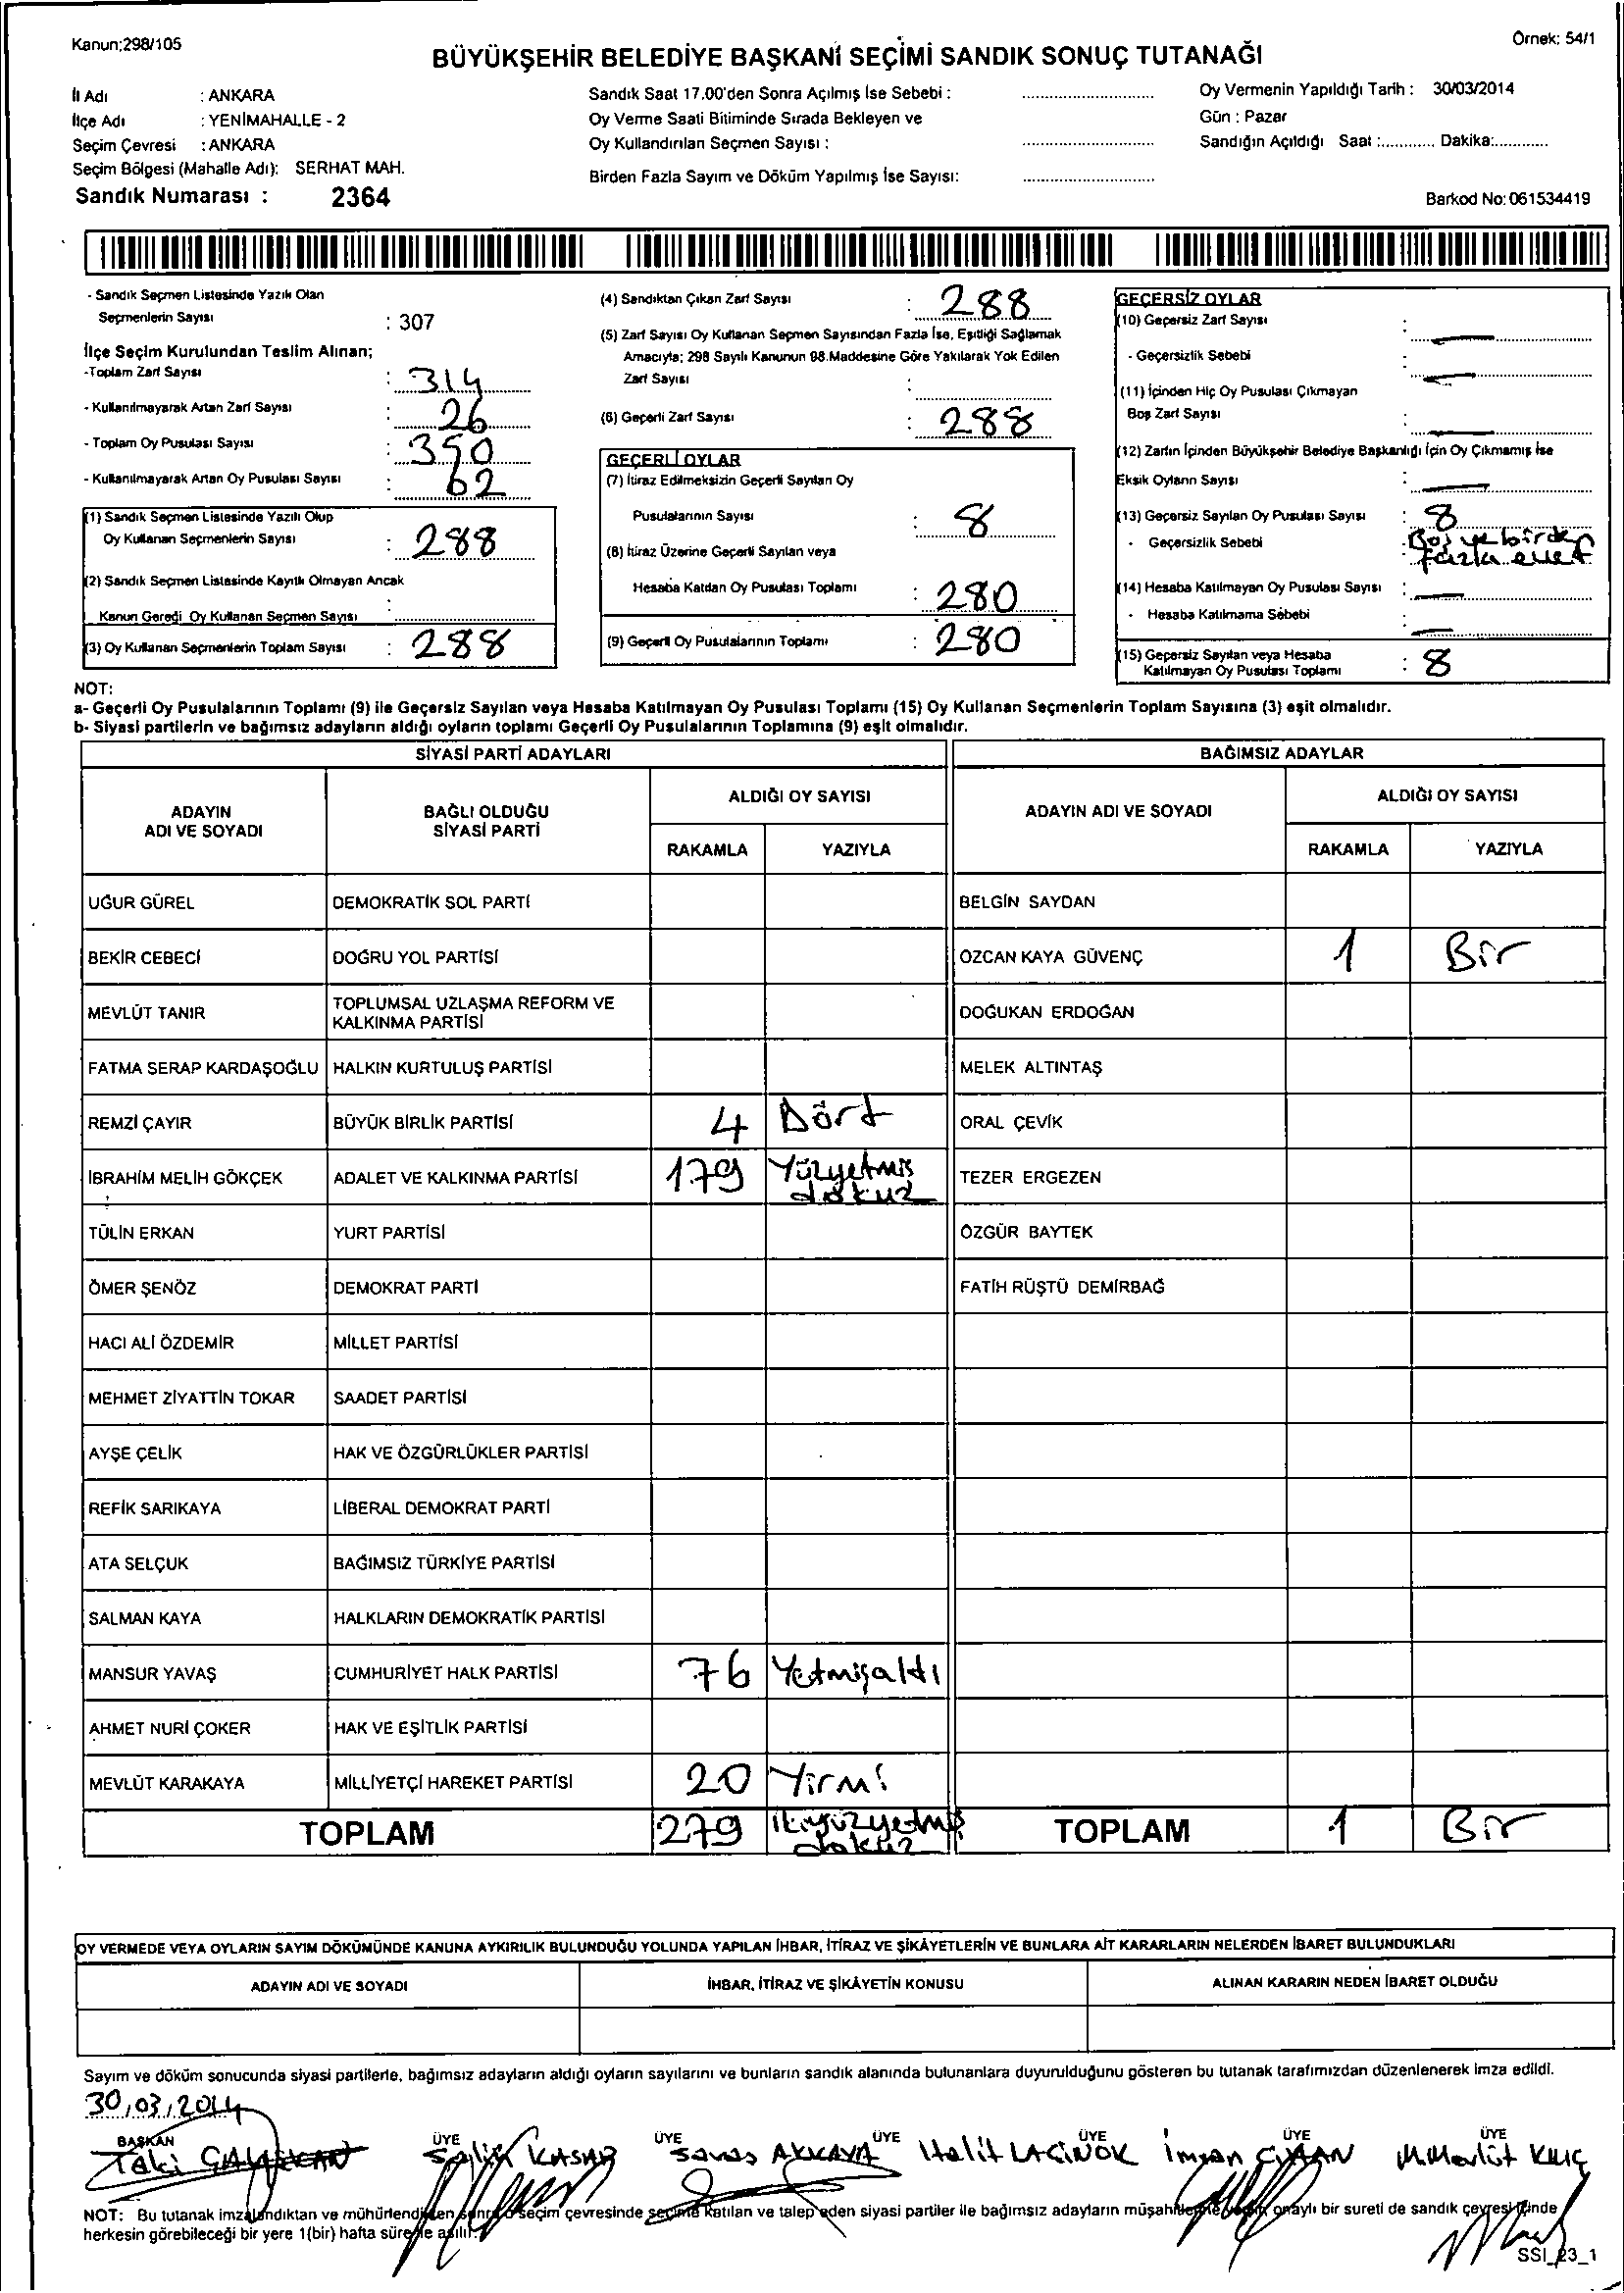 Kanun;298/105
Örnek: 54/1
BÜYÜKŞEHİR BELEDİYE BAŞKANI SEÇİMİ SANDIK SONUÇ TUTANAĞI
İl Adı : ANKARA
İlçe Adı : YENİMAHALLE - 2
Seçim Çevresi : ANKARA
Seçim Bölgesi (Mahalle Adı): SERHAT MAH.
Sandık Numarası : 2364
Sandık Saat 17.00'den Sonra Açılmış İse Sebebi :
Oy Verme Saati Bitiminde Sırada Bekleyen ve
Oy Kullandırılan Seçmen Sayısı :
Birden Fazla Sayım ve Döküm Yapılmış İse Sayısı:
Oy Vermenin Yapıldığı Tarih : 30/03/2014
Gün : Pazar
Sandığın Açıldığı Saat :............ Dakika:............
Barkod No: 061534419
- Sandık Seçmen Listesinde Yazılı Olan
Seçmenlerin Sayısı : 307
İlçe Seçim Kurulundan Teslim Alınan;
-Toplam Zarf Sayısı : 314
- Kullanılmayarak Artan Zarf Sayısı : 26
- Toplam Oy Pusulası Sayısı : 350
- Kullanılmayarak Artan Oy Pusulası Sayısı : 62
(1) Sandık Seçmen Listesinde Yazılı Olup
Oy Kullanan Seçmenlerin Sayısı : 288
(2) Sandık Seçmen Listesinde Kayıtlı Olmayan Ancak
Kanun Gereği Oy Kullanan Seçmen Sayısı :
(3) Oy Kullanan Seçmenlerin Toplam Sayısı : 288
(4) Sandıktan Çıkan Zarf Sayısı : 288
(5) Zarf Sayısı Oy Kullanan Seçmen Sayısından Fazla İse, Eşitliği Sağlamak
Amacıyla; 298 Sayılı Kanunun 98.Maddesine Göre Yakılarak Yok Edilen
Zarf Sayısı :
(6) Geçerli Zarf Sayısı : 288
GEÇERLİ OYLAR
(7) İtiraz Edilmeksizin Geçerli Sayılan Oy
Pusulalarının Sayısı : 8
(8) İtiraz Üzerine Geçerli Sayılan veya
Hesaba Katılan Oy Pusulası Toplamı : 280
(9) Geçerli Oy Pusulalarının Toplamı : 280
GEÇERSİZ OYLAR
(10) Geçersiz Zarf Sayısı : —
- Geçersizlik Sebebi : —
(11) İçinden Hiç Oy Pusulası Çıkmayan
Boş Zarf Sayısı : —
(12) Zarfın İçinden Büyükşehir Belediye Başkanlığı İçin Oy Çıkmamış İse
Eksik Oyların Sayısı : —
(13) Geçersiz Sayılan Oy Pusulası Sayısı : 8
- Geçersizlik Sebebi : Boş ve birden
fazla evet
(14) Hesaba Katılmayan Oy Pusulası Sayısı : —
- Hesaba Katılmama Sebebi : —
(15) Geçersiz Sayılan veya Hesaba
Katılmayan Oy Pusulası Toplamı : 8
NOT:
a- Geçerli Oy Pusulalarının Toplamı (9) ile Geçersiz Sayılan veya Hesaba Katılmayan Oy Pusulası Toplamı (15) Oy Kullanan Seçmenlerin Toplam Sayısına (3) eşit olmalıdır.
b- Siyasi partilerin ve bağımsız adayların aldığı oyların toplamı Geçerli Oy Pusulalarının Toplamına (9) eşit olmalıdır.
SİYASİ PARTİ ADAYLARI
BAĞIMSIZ ADAYLAR
ADAYIN
ADI VE SOYADI
BAĞLI OLDUĞU
SİYASİ PARTİ
ALDIĞI OY SAYISI
RAKAMLA YAZIYLA
ADAYIN ADI VE SOYADI
ALDIĞI OY SAYISI
RAKAMLA YAZIYLA
UĞUR GÜREL DEMOKRATİK SOL PARTİ BELGİN SAYDAN
BEKİR CEBECİ DOĞRU YOL PARTİSİ ÖZCAN KAYA GÜVENÇ 1 Bir
MEVLÜT TANIR TOPLUMSAL UZLAŞMA REFORM VE
KALKINMA PARTİSİ DOĞUKAN ERDOĞAN
FATMA SERAP KARDAŞOĞLU HALKIN KURTULUŞ PARTİSİ MELEK ALTINTAŞ
REMZİ ÇAYIR BÜYÜK BİRLİK PARTİSİ 4 Dört ORAL ÇEVİK
İBRAHİM MELİH GÖKÇEK ADALET VE KALKINMA PARTİSİ 179 Yüzyetmiş
dokuz TEZER ERGEZEN
TÜLİN ERKAN YURT PARTİSİ ÖZGÜR BAYTEK
ÖMER ŞENÖZ DEMOKRAT PARTİ FATİH RÜŞTÜ DEMİRBAĞ
HACI ALİ ÖZDEMİR MİLLET PARTİSİ
MEHMET ZİYATTİN TOKAR SAADET PARTİSİ
AYŞE ÇELİK HAK VE ÖZGÜRLÜKLER PARTİSİ
REFİK SARIKAYA LİBERAL DEMOKRAT PARTİ
ATA SELÇUK BAĞIMSIZ TÜRKİYE PARTİSİ
SALMAN KAYA HALKLARIN DEMOKRATİK PARTİSİ
MANSUR YAVAŞ CUMHURİYET HALK PARTİSİ 76 Yetmişaltı
AHMET NURİ ÇOKER HAK VE EŞİTLİK PARTİSİ
MEVLÜT KARAKAYA MİLLİYETÇİ HAREKET PARTİSİ 20 Yirmi
TOPLAM 279 İkiyüzyetmiş
dokuz TOPLAM 1 Bir
OY VERMEDE VEYA OYLARIN SAYIM DÖKÜMÜNDE KANUNA AYKIRILIK BULUNDUĞU YOLUNDA YAPILAN İHBAR, İTİRAZ VE ŞİKÂYETLERİN VE BUNLARA AİT KARARLARIN NELERDEN İBARET BULUNDUKLARI
ADAYIN ADI VE SOYADI İHBAR, İTİRAZ VE ŞİKÂYETİN KONUSU ALINAN KARARIN NEDEN İBARET OLDUĞU
Sayım ve döküm sonucunda siyasi partilerle, bağımsız adayların aldığı oyların sayılarını ve bunların sandık alanında bulunanlara duyurulduğunu gösteren bu tutanak tarafımızdan düzenlenerek imza edildi.
30,03,2014
BAŞKAN ÜYE ÜYE ÜYE ÜYE ÜYE ÜYE
Salih KASAP Savaş AKKAYA Halit LAÇİNOK İmran M.Mevlüt KILIÇ
NOT: Bu tutanak imzalandıktan ve mühürlendikten sonra o seçim çevresinde seçime katılan ve talep eden siyasi partiler ile bağımsız adayların müşahitlerine verilir, onaylı bir sureti de sandık çevresi içinde
herkesin görebileceği bir yere 1(bir) hafta süre ile asılır.
SSI_23_1